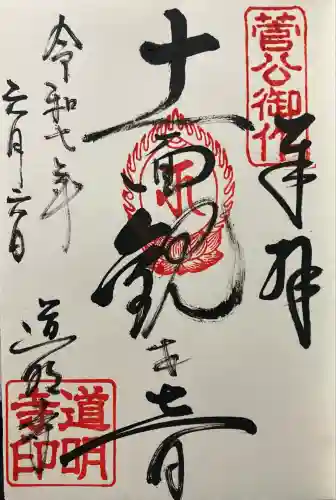 菅公御作
奉拝
十一面観
音
令和七年
六月六日
道明寺
道明
寺印